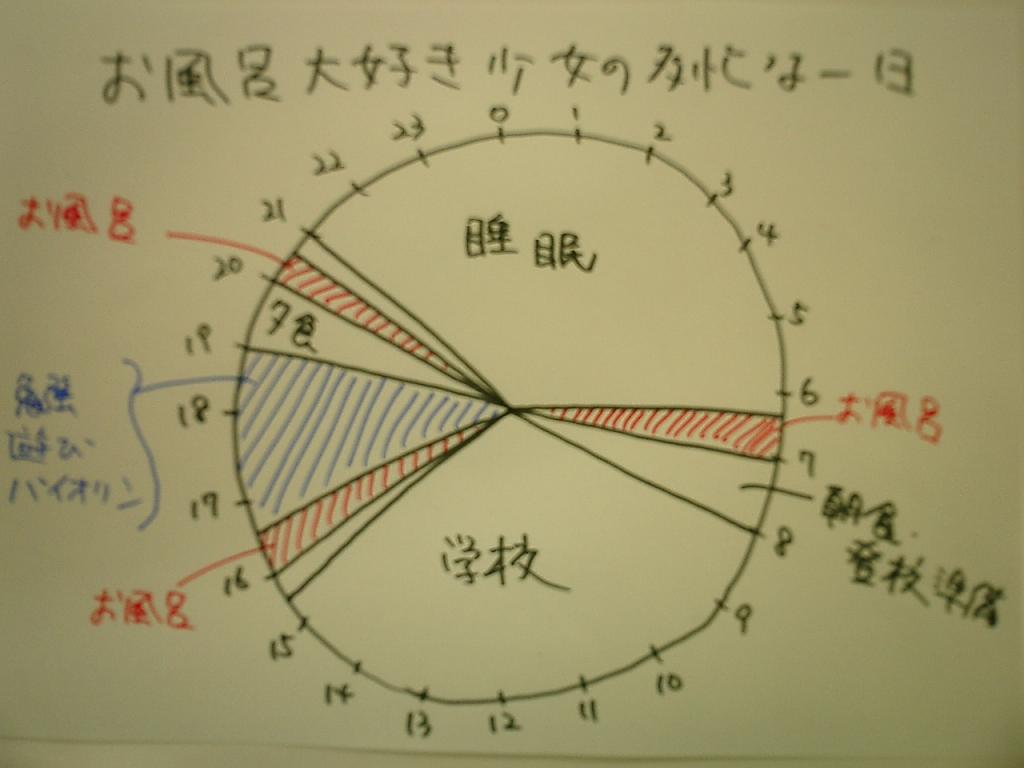 お風呂大好き少女の多忙な一日
0
1
2
3
4
5
6
7
8
9
10
11
12
13
14
15
16
17
18
19
20
21
22
23
睡眠
お風呂
朝食・
登校準備
学校
お風呂
遊び
バイオリン
夕食
お風呂